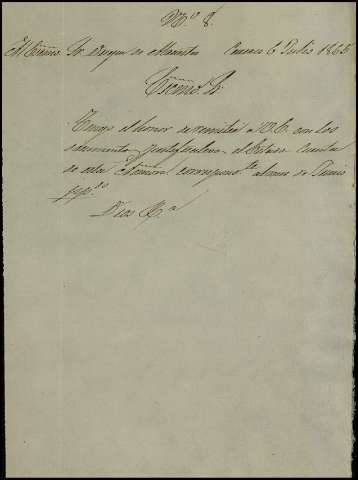 N.º 8.
Al Excmo. Sr. Duque de 6 Julio 1865
Excmo. Sr.
Tengo el honor de remitir a V. E. con los
documentos justificativos, el Estado Cuenta
de esta correspond.te al mes de Junio
pp.do
Dios &.a